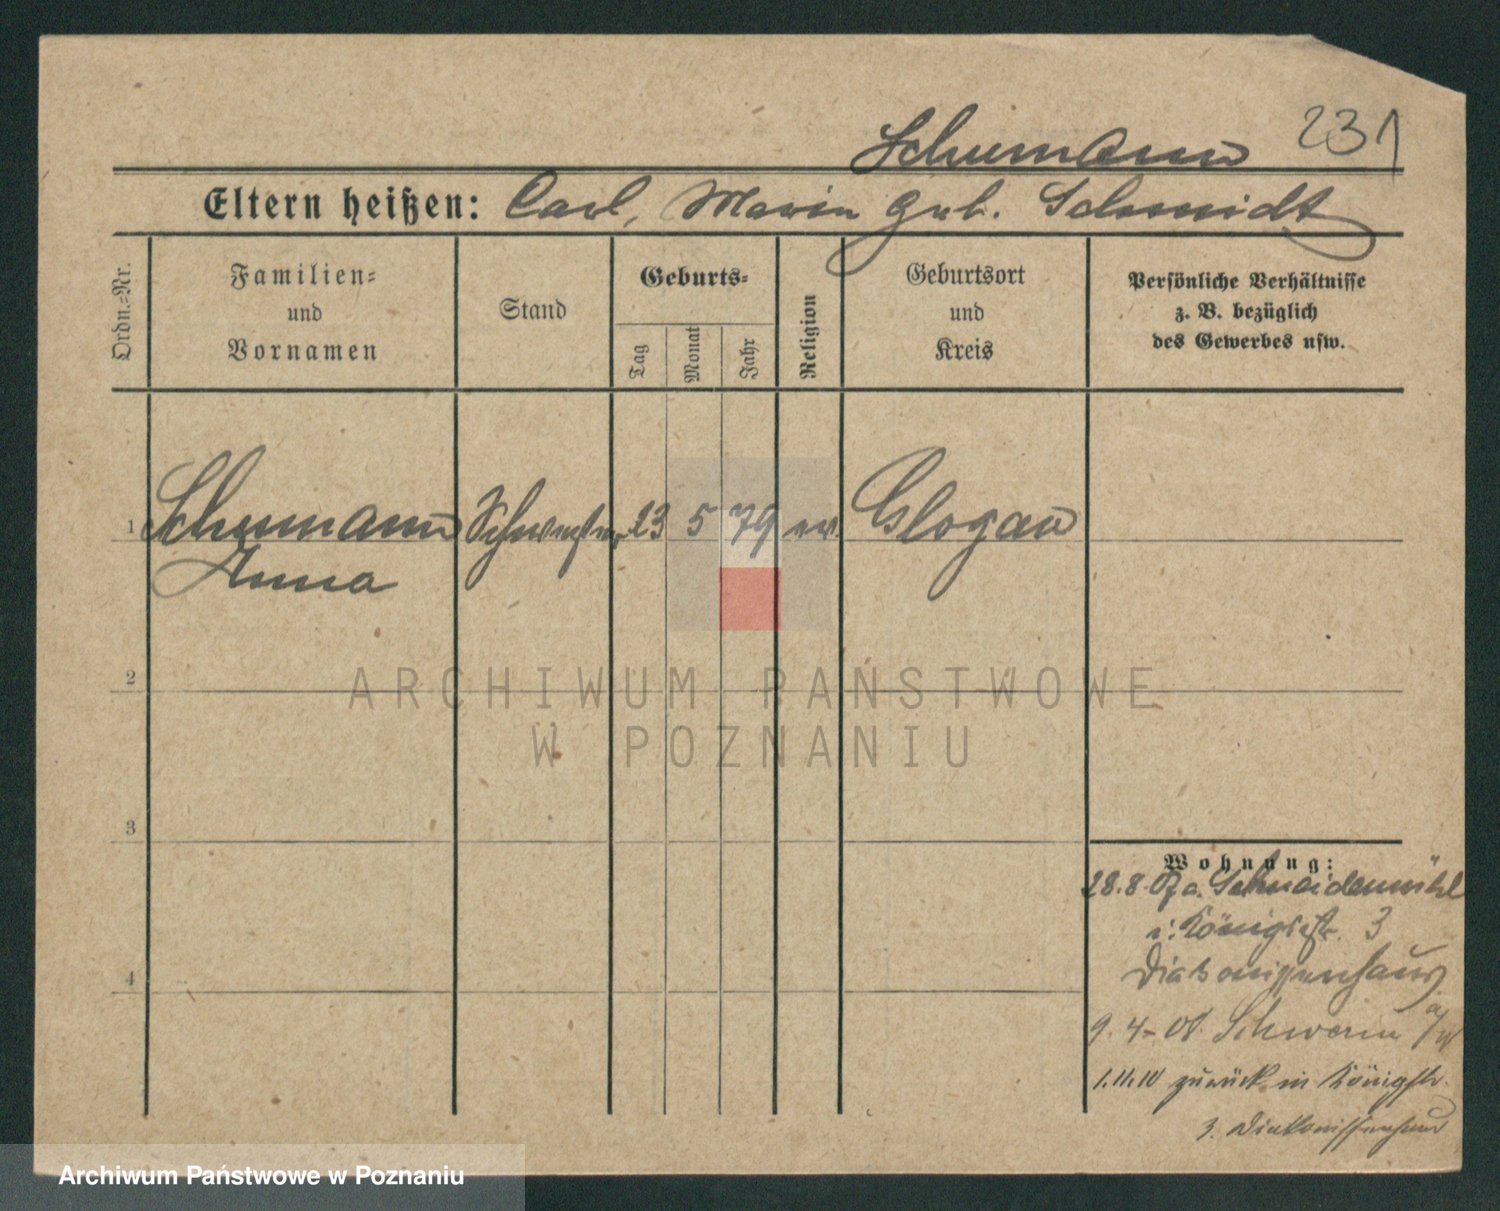 Schumann 231
Eltern heißen: Carl, Marie geb. Schmidt
Ordn.-Nr.
Familien-
und
Vornamen
Stand
Geburts-
Tag
Monat
Jahr
Religion
Geburtsort
und
Kreis
Persönliche Verhältnisse
z. B. bezüglich
des Gewerbes usw.
1 Schumann Schwester 23 5 79 ev. Glogau
Anna
2
3
4
Wohnung:
28.8. a. Schneidemühl
i. Königst. 3
Diakonissenhaus
9. 4- 08 Schwerin a/W
1.11.10 zurück in Königstr.
3. Diakonissenhaus
ARCHIWUM PAŃSTWOWE
W POZNANIU
Archiwum Państwowe w Poznaniu